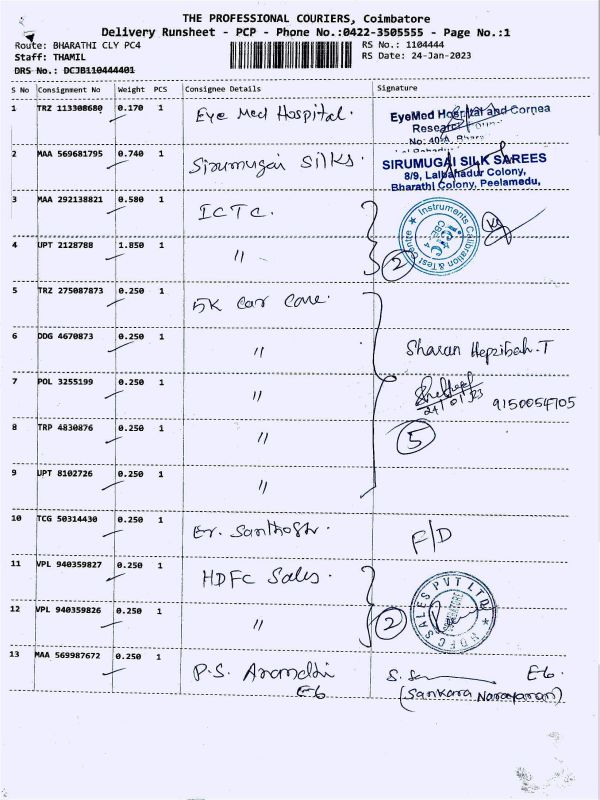 THE PROFESSIONAL COURIERS, Coimbatore
Delivery Runsheet - PCP - Phone No.:0422-3505555 - Page No.:1
Route: BHARATHI CLY PC4 RS No.: 1104444
Staff: THAMIL RS Date: 24-Jan-2023
DRS No.: DCJB110444401
S No Consignment No Weight PCS Consignee Details Signature
1 TRZ 113308680 0.170 1 Eye Med Hospital. EyeMed Hospital and Cornea
Research
No: 40-A,
2 MAA 569681795 0.740 1 Sirumugai Silks. SIRUMUGAI SILK SAREES
8/9, Lalbahadur Colony,
Bharathi Colony, Peelamedu,
3 MAA 292138821 0.580 1 ICTC. Instruments Calibration & Test Centre
4 UPT 2128788 1.850 1 " 2
5 TRZ 275087873 0.250 1 5K Car Care.
6 DDG 4670873 0.250 1 " Sharan Hepzibah.T
7 POL 3255199 0.250 1 " 24/01/23 9150054705
8 TRP 4830876 0.250 1 " 5
9 UPT 8102726 0.250 1 "
10 TCG 50314430 0.250 1 Er. Santhosh. F/D
11 VPL 940359827 0.250 1 HDFC Sales. HDFC SALES PVT LTD
12 VPL 940359826 0.250 1 " 2
13 MAA 569987672 0.250 1 P.S. E6
E6 (Sankara Narayanan)